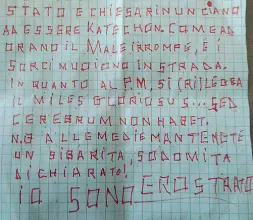 STATO E CHIESA RINUNCIANO
AD ESSERE KATECHON. COME AD
ORANO IL MALE IRROMPE, E I
SORCI MUOIONO IN STRADA.
IN QUANTO AL P.M, SI (RI)LEGGA
IL MILES GLORIOSUS... SED
CEREBRUM NON HABET.
N.B ALLE MEDIE MANTENETE
UN SIBARITA, SODOMITA
DICHIARATO!
IO SONO EROSTRATO